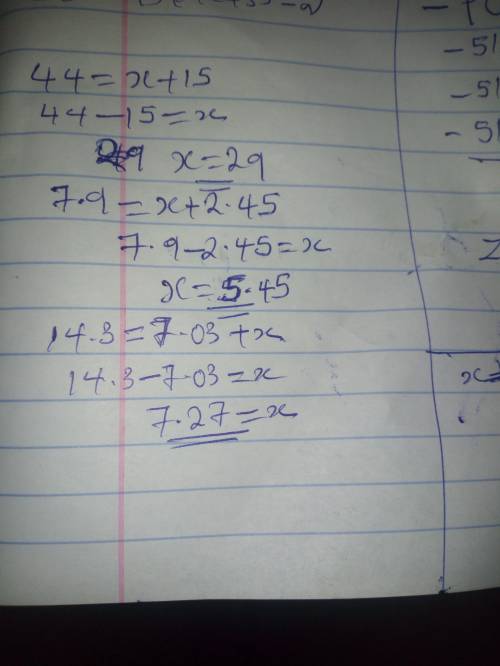 44 = x + 15
44 - 15 = x
29 x = 29
7.9 = x + 2.45
7.9 - 2.45 = x
x = 5.45
14.3 = 7.03 + x
14.3 - 7.03 = x
7.27 = x
- 51
- 51
- 51
x =